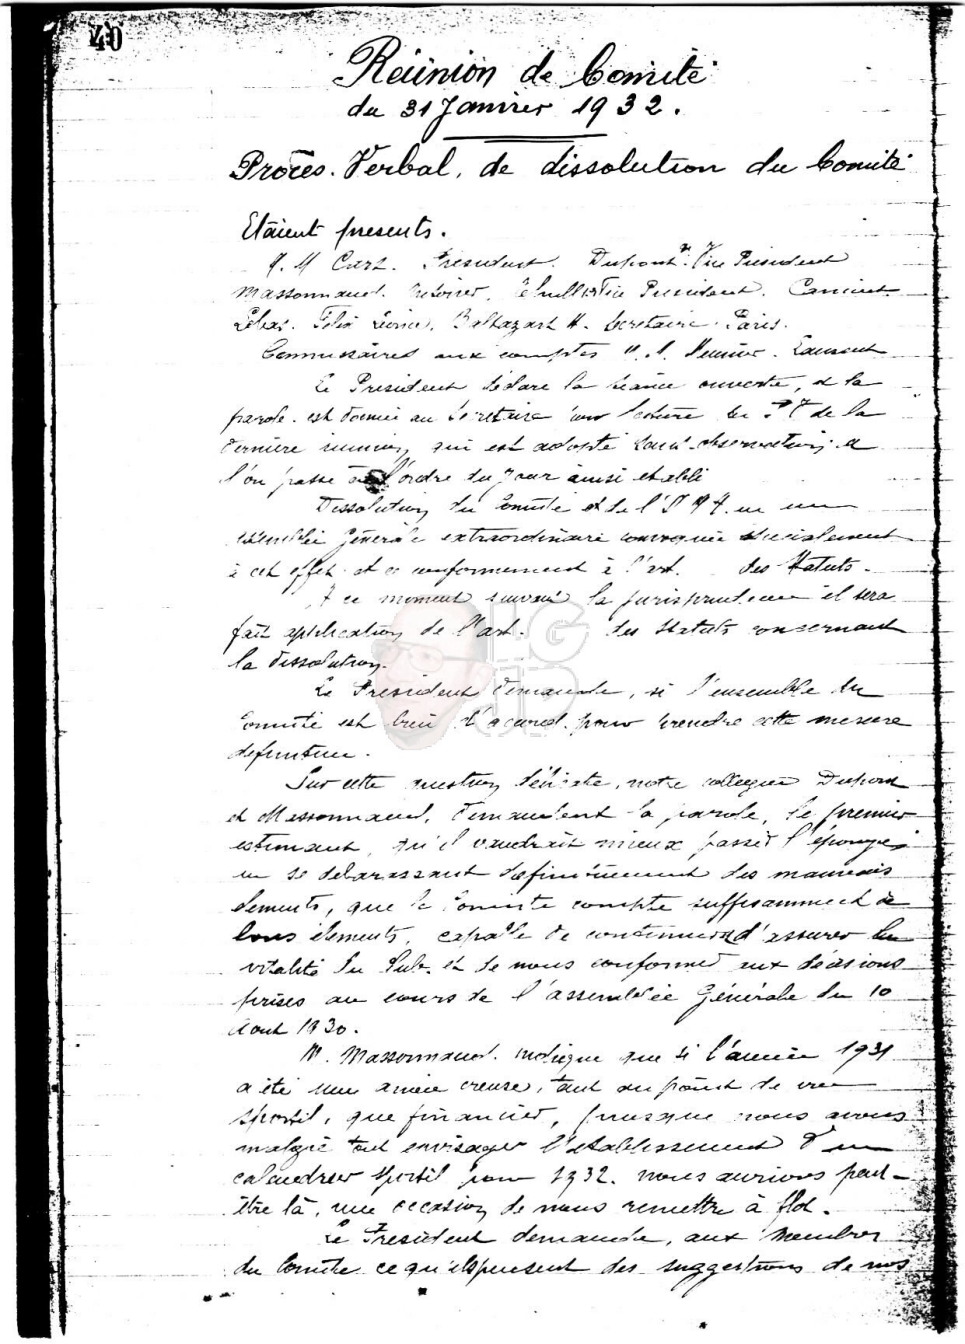 40
Réunion de Comité
du 31 Janvier 1932.
Procès-Verbal, de dissolution du Comité
Etaient presents.
M. M Cart. President. Dupont Vice President
Massonnaud. Vice President.
Baltazart H. Secretaire Paris.
Commissaires aux comptes M. M. Meunier. Laurent
Le President déclare la séance ouverte, et la
parole est donnée au Secretaire pour lecture du P V de la
dernière reunion, qui est adopté sans observation, et
l'on passe à l'ordre du jour ainsi etabli
Dissolution du Comité et de l'
assemblée Générale extraordinaire convoquée specialement
à cet effet et ce conformement à l'art. des Statuts.
A ce moment suivant la jurisprudence il sera
fait application de l'art. des Statuts concernant
la dissolution.
Le President demande, si l'ensemble du
Comité est bien d'accord pour prendre cette mesure
definitive.
Sur cette question délicate, notre collegue Dupont
et Massonnaud, demandent la parole, le premier
estimant, qu'il vaudrait mieux passer l'éponge,
en se debarassant definitivement des mauvais
elements, que le Comité compte suffisamment de
bons élements, capable de continuer d'assurer la
vitalité du Club, et de nous conformer aux décisions
prises au cours de l'assemblée Générale du 10
Aout 1930.
M. Massonnaud. indique que si l'année 1931
a été une année creuse, tant au point de vue
sportif, que financier, puisque nous avons
malgré tout envisager l'etablissement d'un
calendrier sportif pour 1932. nous aurions peut-
être là, une occasion de nous remettre à flot.
Le President demande, aux membres
du Comité ce qu'ils pensent des suggestions de nos
I.G
JP